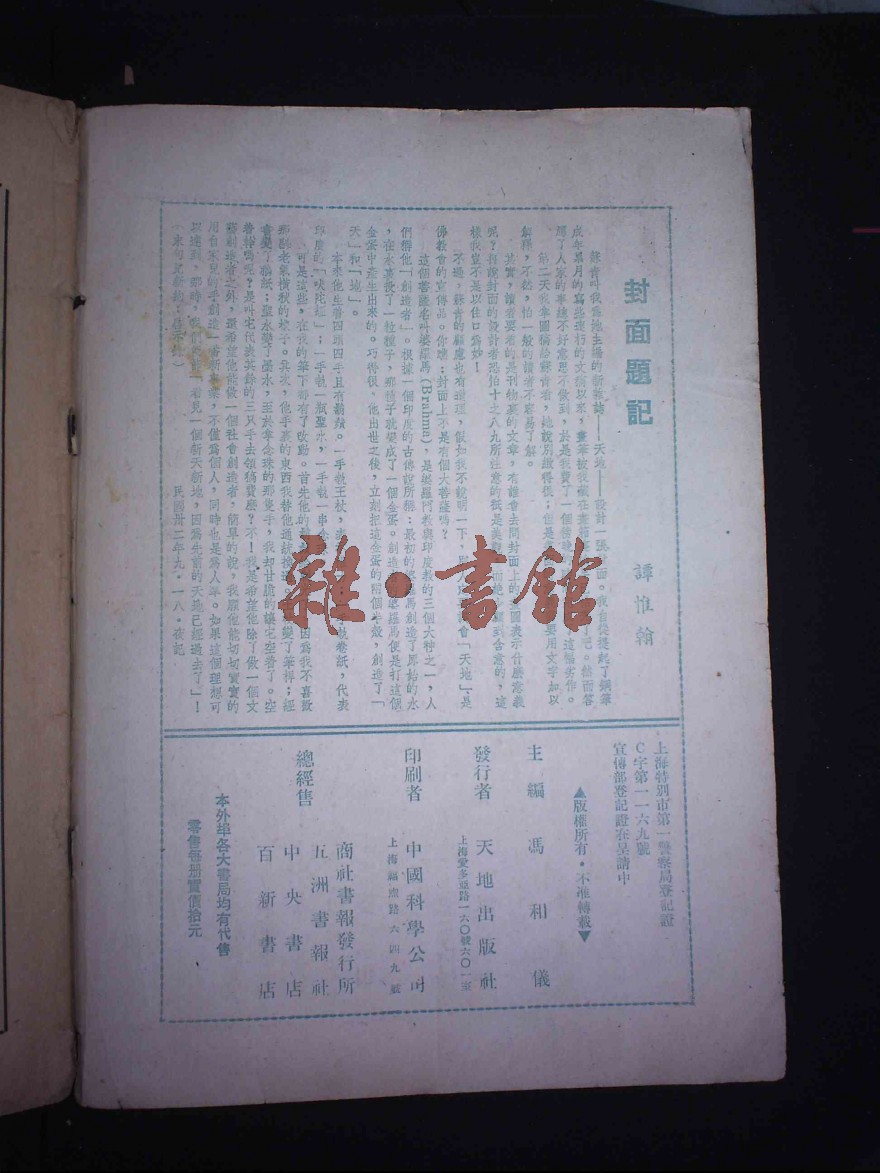 封面題記
譚惟翰
蘇青叫我為她主編的新雜誌——天地——設計一張封面。我自從提起了鋼筆
成年累月的寫些連行的文稿以來,畫筆被我藏在
了人家的事總不好意思不做到,於是我費了一個
第二天我拿圖稿給蘇青看,她說別緻得很;但是
要用文字加以
解釋,不然,怕一般的讀者不容易了解。
其實,讀者要看的是刊物裏的文章,有誰會去問封面上的
圖表示什麼意義
呢?再說封面的設計者恐怕十之八九所注意的祗是美觀
顧到含意的,這
樣我豈不是以住口為妙!
不過,蘇青的顧慮也有道理,假如我不說明一下,
會「天地」是
佛教會的宣傳品。你瞧:封面上不是有個大菩薩嗎?
這個菩薩名叫婆羅馬(Brahma),是婆羅門教與印度教的三個大神之一,人
們稱他「創造者」。根據一個印度的古傳說所稱:最初的婆羅馬創造了原始的水
,在水裏投了一粒種子,那種子就變成了一個金蛋。創造
婆羅馬便是打這個
金蛋中產生出來的。巧得很,他出世之後,立刻把這金蛋的兩個半殼,創造了「
天」和「地」。
本來他生着四頭四手,且有鬍鬚。一手執王杖,
執卷紙,代表
印度的「吠陀經」;一手執一瓶聖水,一手執一串念
可是這些,在我的筆下都有了改動。首先他的
因為我不喜歡
那副老氣橫秋的樣子。其次,他手裏的東西我替他通統換過
變了筆桿;經
書變了稿紙;聖水變了墨水,至於拿念珠的那隻手,我却甘脆的讓它空着了。空
着幹嗎呢?是叫它代表其餘的三只手去領稿費麼?不!我是希望他除了做一個文
藝創造者之外,還希望他能做一個社會創造者,簡單的說,我願他能切切實實的
用自家兒的手創造一番新事業,不僅為個人,同時也是為人羣。如果這個理想可
以達到,那時,我們
「看見一個新天新地,因為先前的天地已經過去了」!
(末句見新約:啟示錄)
民國卅二年九·一八·夜記
上海特別市第一警察局登記證
C字第一一六九號
宣傳部登記證在呈請中
▲版權所有·不准轉載▼
主編 馮和儀
發行者 天地出版社
上海愛多亞路一六〇號六〇一室
印刷者 中國科學公司
上海福煦路六四九號
總經售
商社書報發行所
五洲書報社
中央書店
百新書店
本外埠各大書局均有代售
零售每册實價拾元
雜·書館